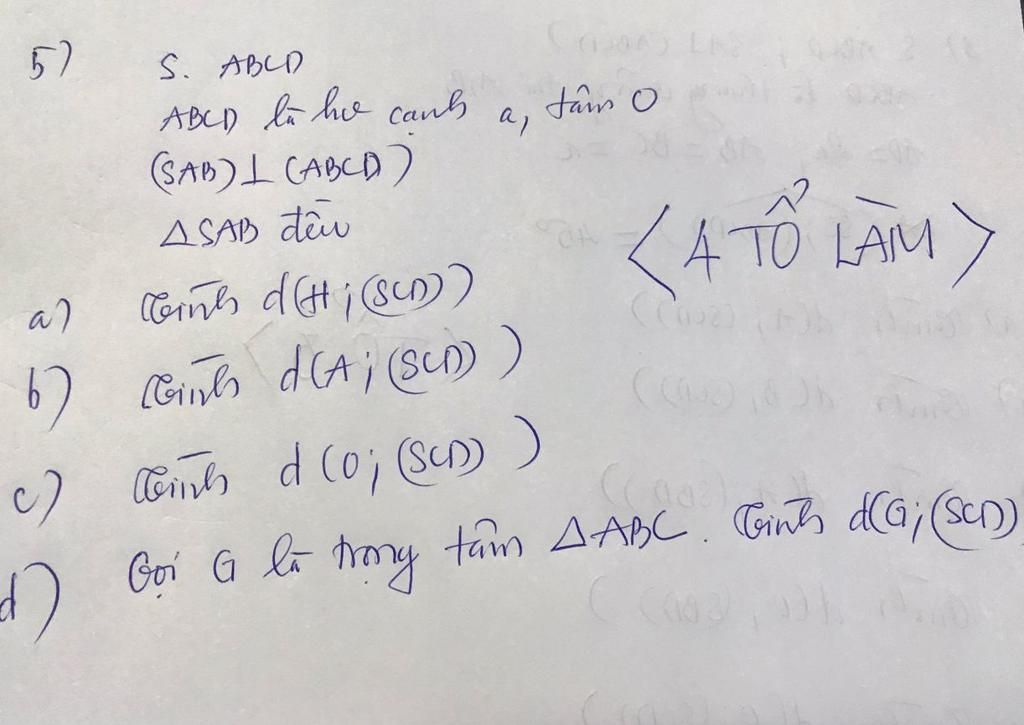 5) S. ABCD
ABCD là hv cạnh a, tâm O
(SAB) ⊥ (ABCD)
△SAB đều
<4 TỔ LÀM>
a) Tính d(H; (SCD))
b) Tính d(A; (SCD))
c) Tính d(O; (SCD))
d) Gọi G là trọng tâm △ABC. Tính d(G; (SCD)